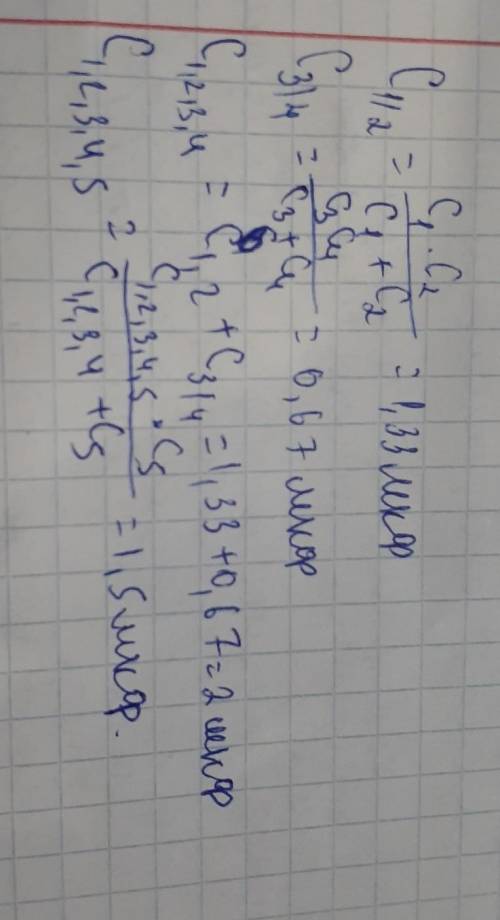 C₁,₂ = C₁·C₂ / C₁ + C₂ = 1,33 мкф
C₃,₄ = C₃C₄ / C₃ + C₄ = 0,67 мкф
C₁,₂,₃,₄ = C₁,₂ + C₃,₄ = 1,33 + 0,67 = 2 мкф
C₁,₂,₃,₄,₅ = C₁,₂,₃,₄,₅ · C₅ / C₁,₂,₃,₄ + C₅ = 1,5 мкф.